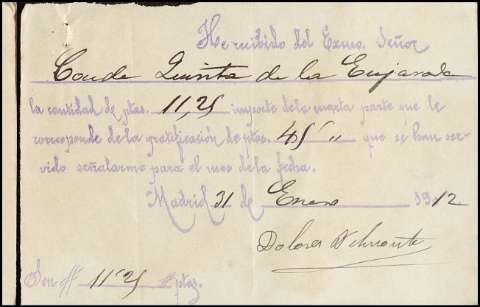 He recibido del Exmo. Señor
Conde Quinta de la Enjarada
la cantidad de ptas. 11,25 importe de la cuarta parte que le
corresponde de la gratificación de ptas. 45 " que se han ser-
vido señalarme para el mes de la fecha.
Madrid 31 de Enero 1912
Dolores
Son # 11'25 ptas.